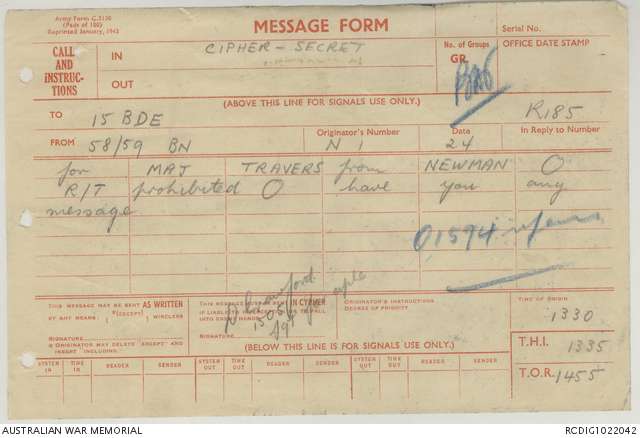 Army Form C.2136
(Pads of 100)
Reprinted January, 1943
MESSAGE FORM
Serial No.
CALL
AND
INSTRUC-
TIONS
IN
CIPHER - SECRET
No. of Groups
GR.
OFFICE DATE STAMP
OUT
(ABOVE THIS LINE FOR SIGNALS USE ONLY.)
TO
15 BDE
R185
FROM
58/59 BN
Originator's Number
N 1
Date
24
In Reply to Number
for MAJ TRAVERS from NEWMAN O
R/T prohibited O have you any
message
01574
THIS MESSAGE MAY BE SENT AS WRITTEN
BY ANY MEANS (EXCEPT) WIRELESS
SIGNATURE
ORIGINATOR MAY DELETE EXCEPT AND
INSERT INCLUDING.
THIS MESSAGE MUST BE SENT IN CYPHER
IF LIABLE TO
FALL
INTO ENEMY HANDS.
SIGNATURE
ORIGINATOR'S INSTRUCTIONS
DEGREE OF PRIORITY
TIME OF ORIGIN
1330
(BELOW THIS LINE IS FOR SIGNALS USE ONLY.)
T.H.I. 1335
SYSTEM IN
TIME IN
READER
SENDER
SYSTEM OUT
TIME OUT
READER
SENDER
SYSTEM OUT
TIME OUT
READER
SENDER
T.O.R. 1455
AUSTRALIAN WAR MEMORIAL
RCDIG1022042